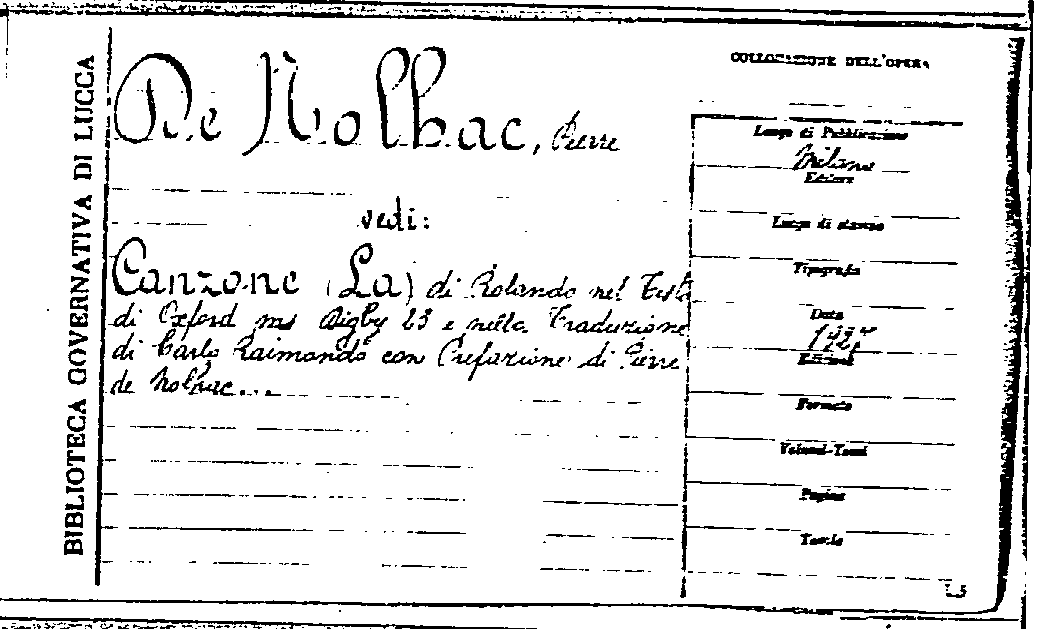 BIBLIOTECA GOVERNATIVA DI LUCCA
De Nolhac, Pierre
vedi:
Canzone (La) di Rolando nel Testo
di Oxford ms Digby 23 e nella Traduzione
di Carlo Raimondo con Prefazione di Pierre
de Nolhac...
COLLOCAZIONE DELL'OPERA
Luogo di Pubblicazione
Milano
Editore
Luogo di stampa
Tipografia
Data
Edizione
Formato
Volumi-Tomi
Pagine
Tavole